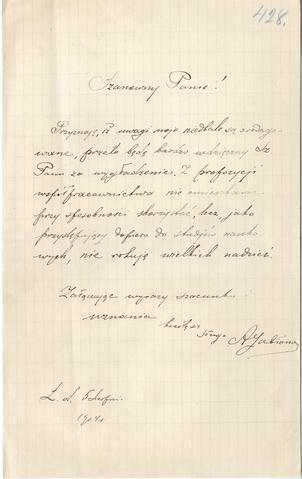 428.
Szanowny Panie!
Przyznaję, iż uwagi moje niedbale są zredago-
wane, przeto będę bardzo wdzięczny Sz.
Panu za wygładzenie. Z propozycji
współpracownictwa nie omieszkam
przy sposobności skorzystać, lecz, jako
przystępujący dopiero do studjów nauko
wych, nie rokuję wielkich nadziei.
Załączając wyrazy szacunku i
uznania
sługa
Ł. d. 5
1904 r.